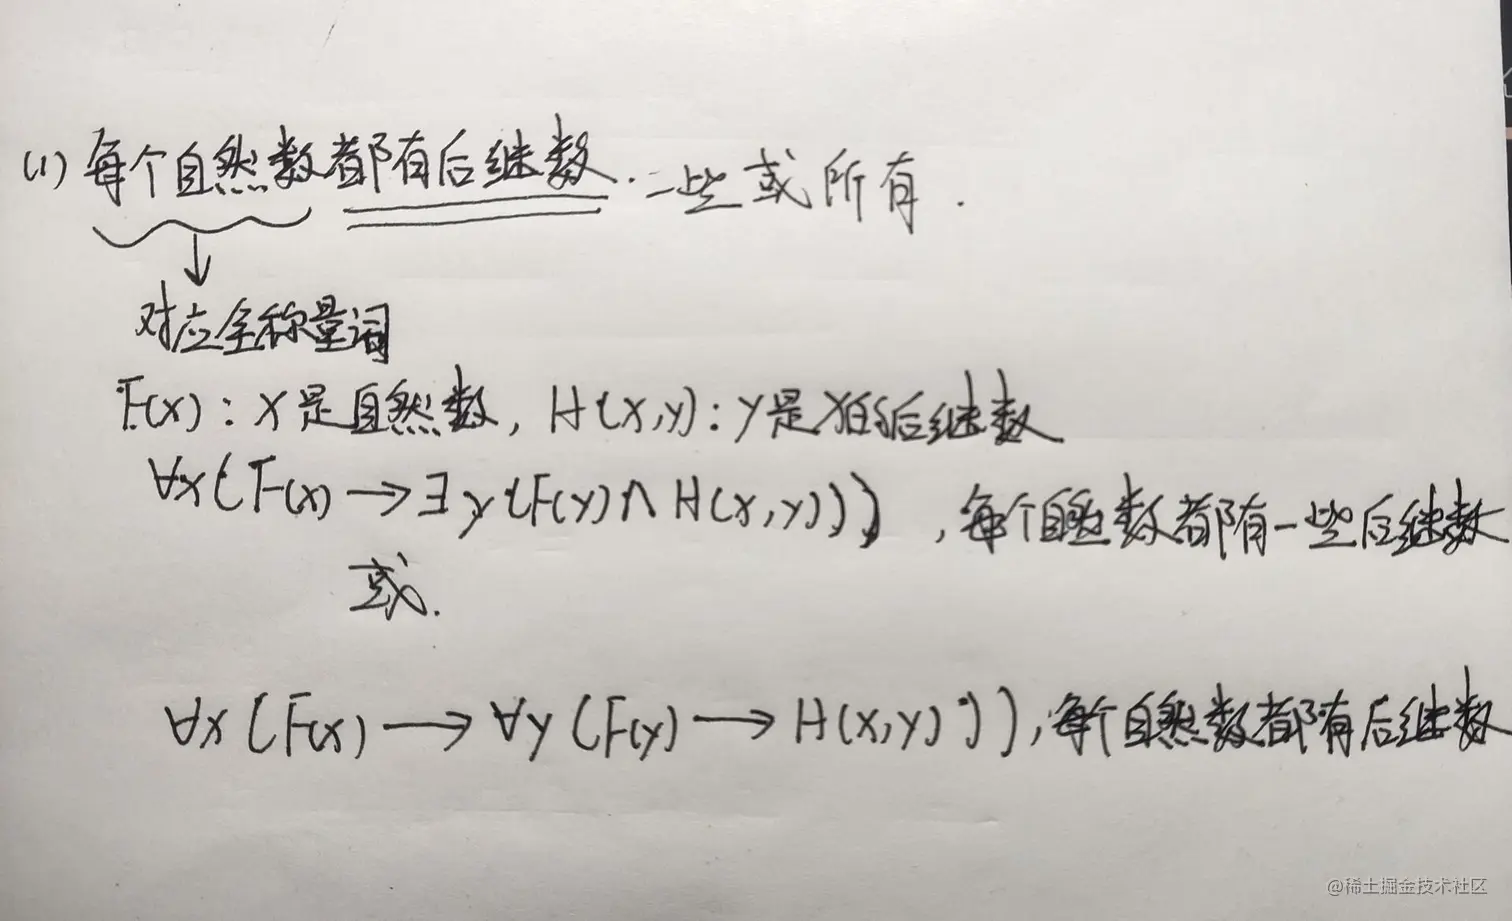 (1) 每个自然数都有后继数. 一些或所有.
对应全称量词
F(x): x是自然数, H(x,y): y是x的后继数
∀x(F(x)→∃y(F(y)∧H(x,y))) ,每个自然数都有一些后继数
或.
∀x(F(x)→∀y(F(y)→H(x,y))),每个自然数都有后继数
@稀土掘金技术社区